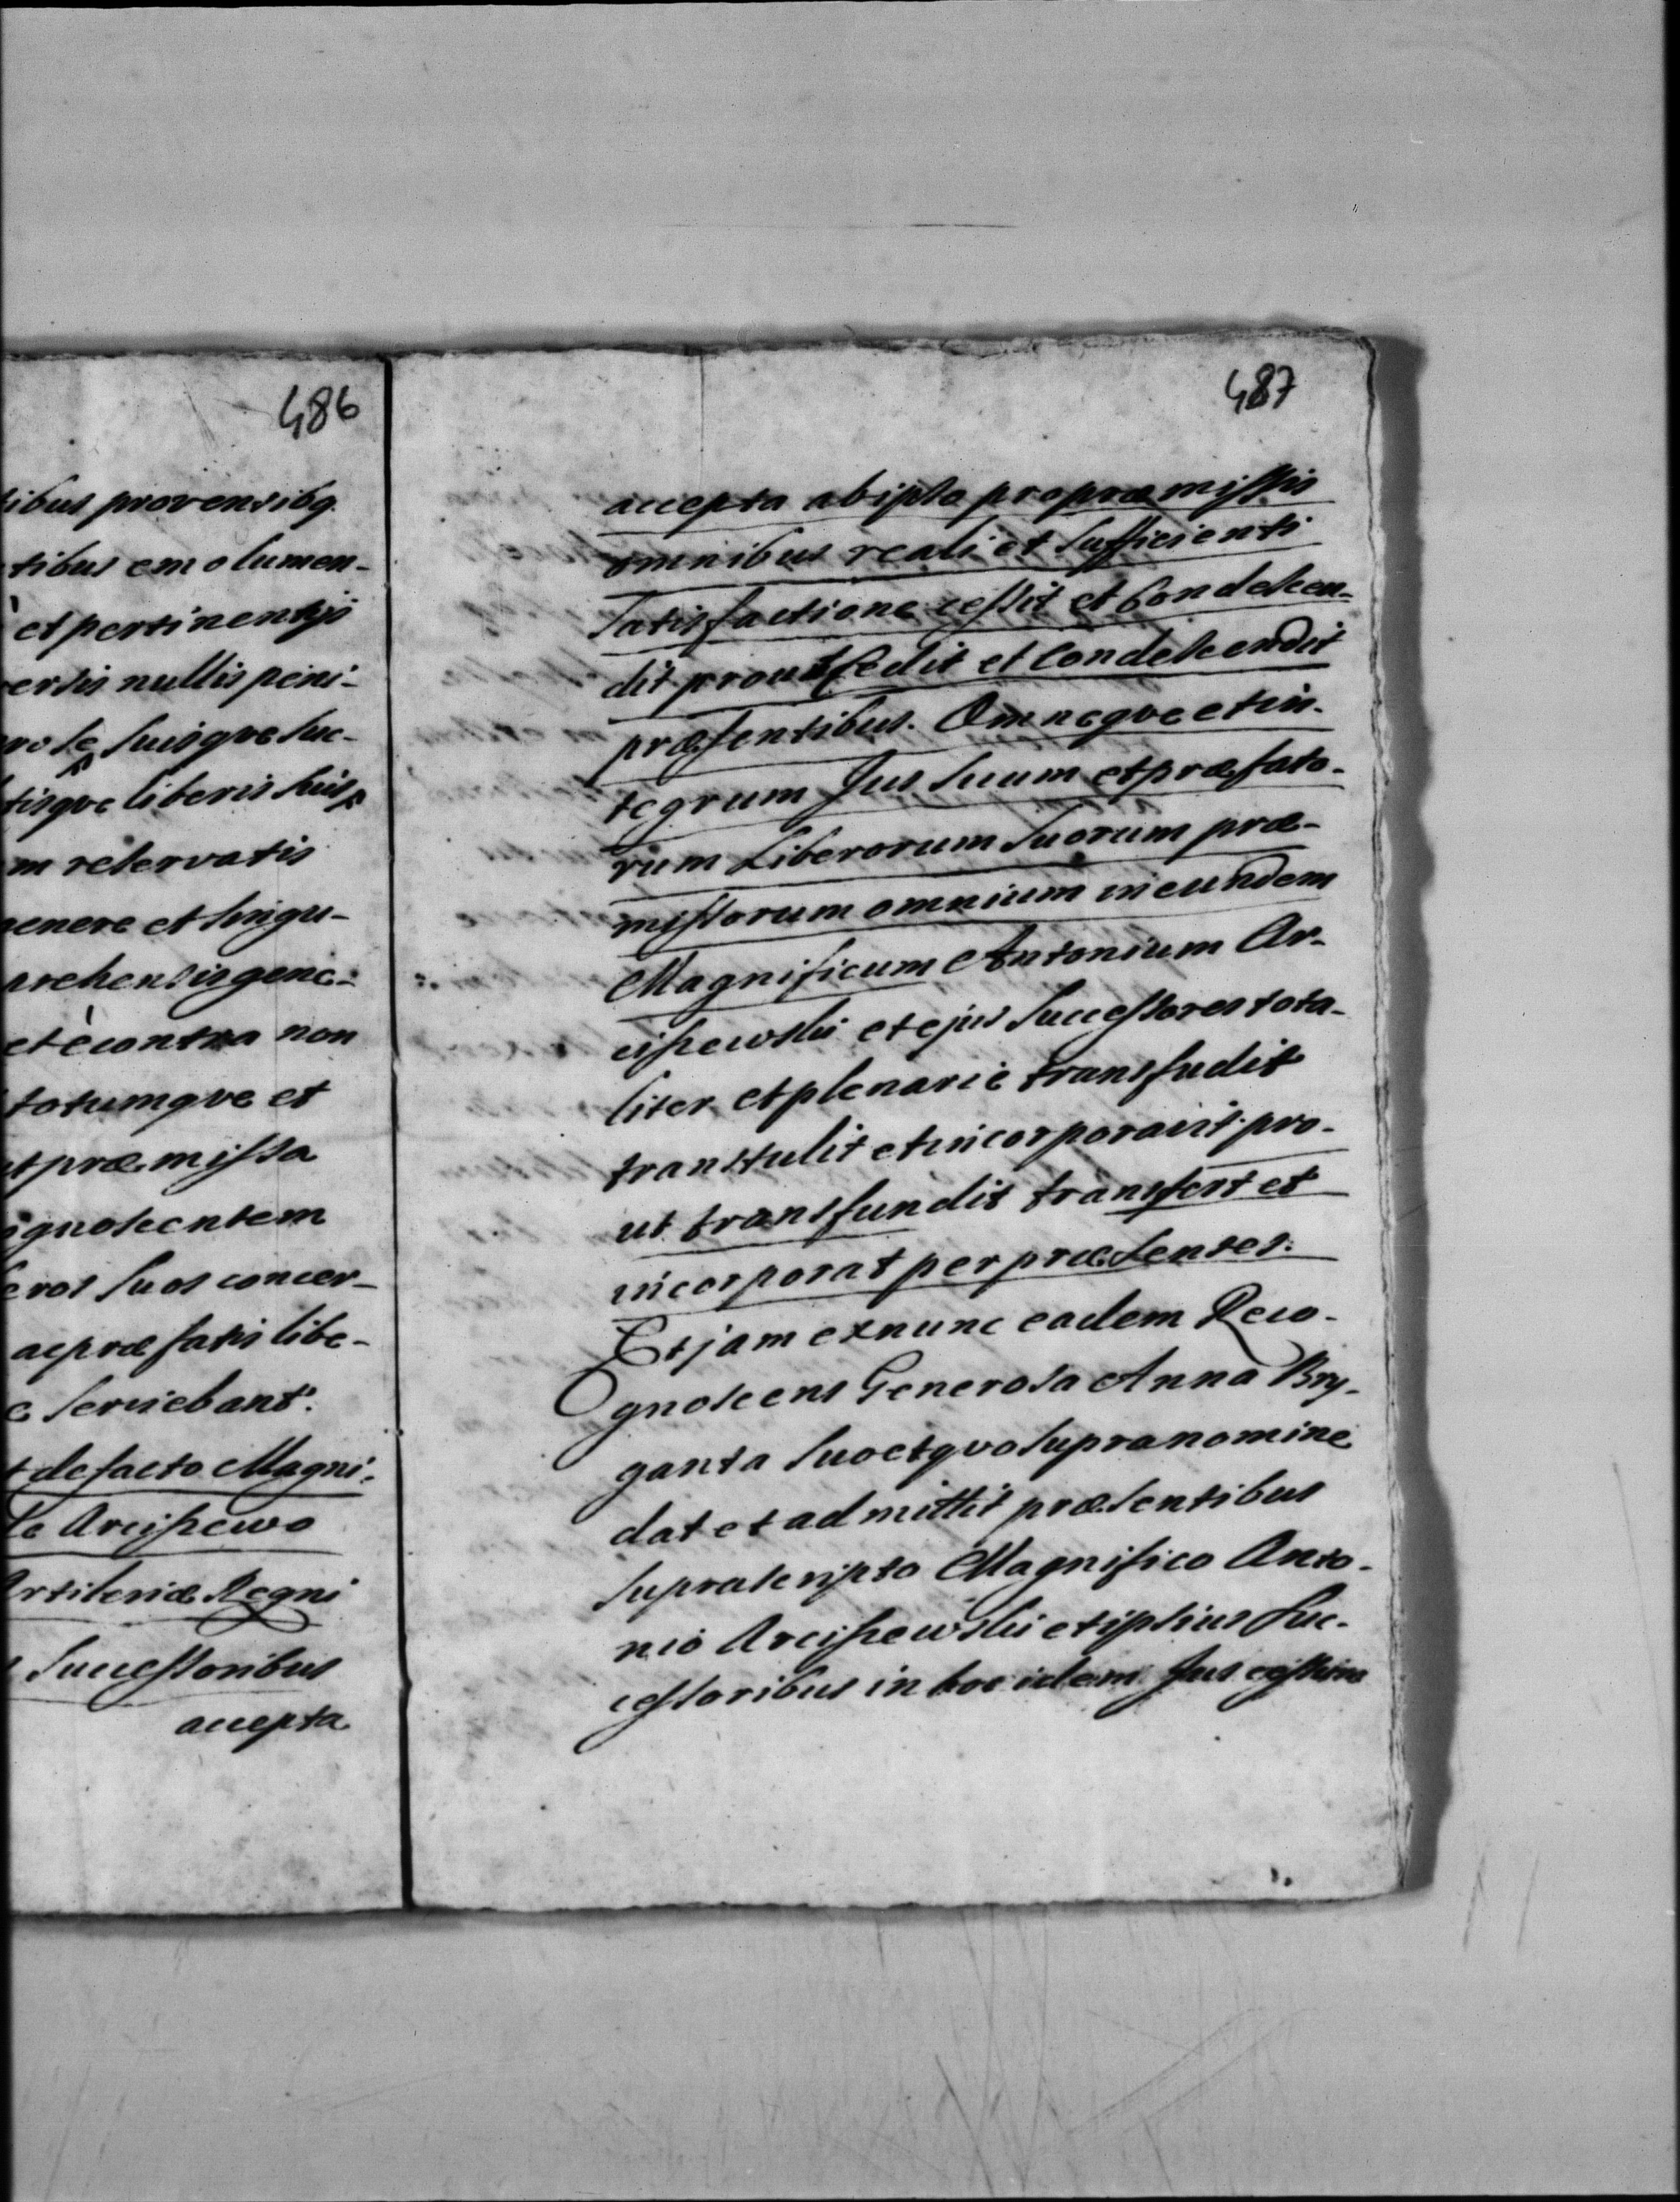 486
tibus proventibq.
tibus emolumen-
et pertinentijs
ersis nullis peni-
ro se suisqve suc-
tisqve liberis suis
m reservatis
genere et singu-
prehensis gene-
et è contra non
totumqve et
præmissa
ognoscentem
eros suos concer-
ac præfatis libe-
serviebant.
de facto Magni-
de Arciszewo
Artileriæ Regni
Successoribus
accepta
487
accepta ab ipso pro præmissis
omnibus reali et sufficienti
satisfactione cessit et Condescen-
dit prout Cedit et Condescendit
præsentibus. Omneqve et in-
tegrum Jus suum et præfato-
rum Liberorum suorum præ-
missorum omnium in eundem
Magnificum Antonium Ar-
ciszewski et ejus Successores tota-
liter et plenarie transfudit
transtulit et incorporavit pro-
ut transfundit transfert et
incorporat per præsentes.
Et jam ex nunc eadem Reco-
gnoscens Generosa Anna Bry-
ganta suo et qvo supra nomine
dat et admittit præsentibus
suprascripto Magnifico Anto-
nio Arciszewski et ipsius Suc-
cessoribus in hoc idem Jus